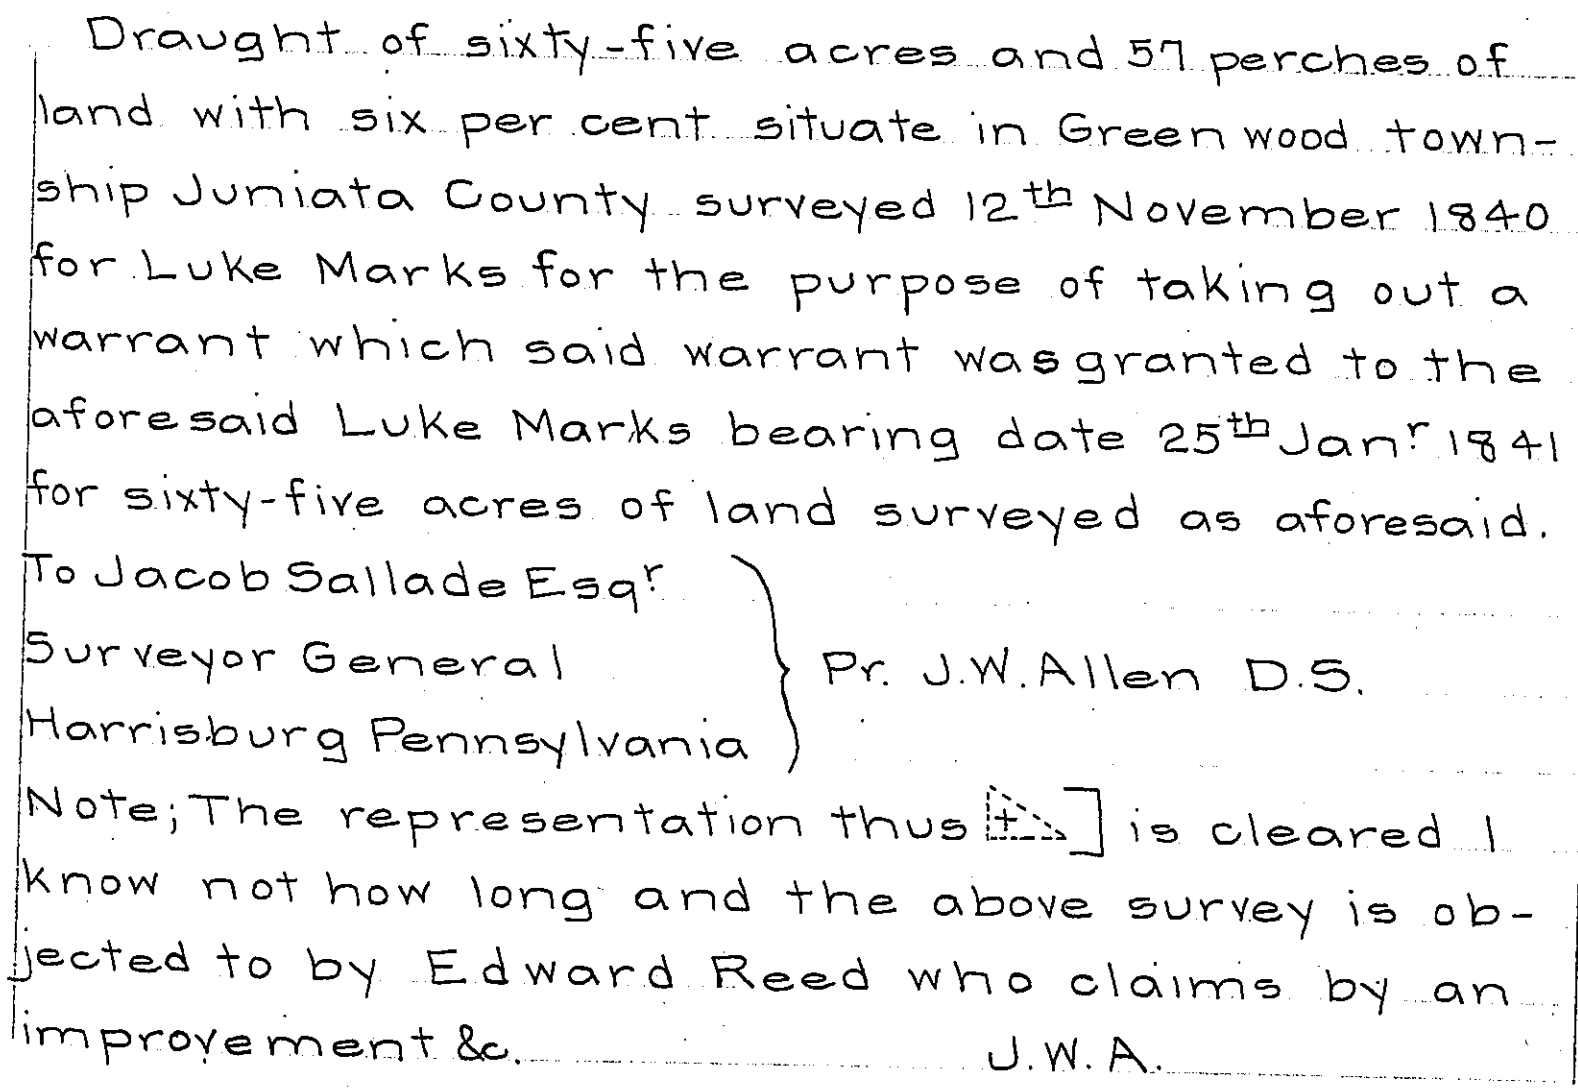 Draught of sixty-five acres and 57 perches of
land with six per cent situate in Green wood town-
ship Juniata County surveyed 12th November 1840
for Luke Marks for the purpose of taking out a
warrant which said warrant was granted to the
aforesaid Luke Marks bearing date 25th Janr 1841
for sixty-five acres of land surveyed as aforesaid.
To Jacob Sallade Esqr
Surveyor General
Harrisburg Pennsylvania
Pr. J.W. Allen D.S.
Note; The representation thus + ] is cleared I
know not how long and the above survey is ob-
jected to by Edward Reed who claims by an
improvement &c. J.W.A.